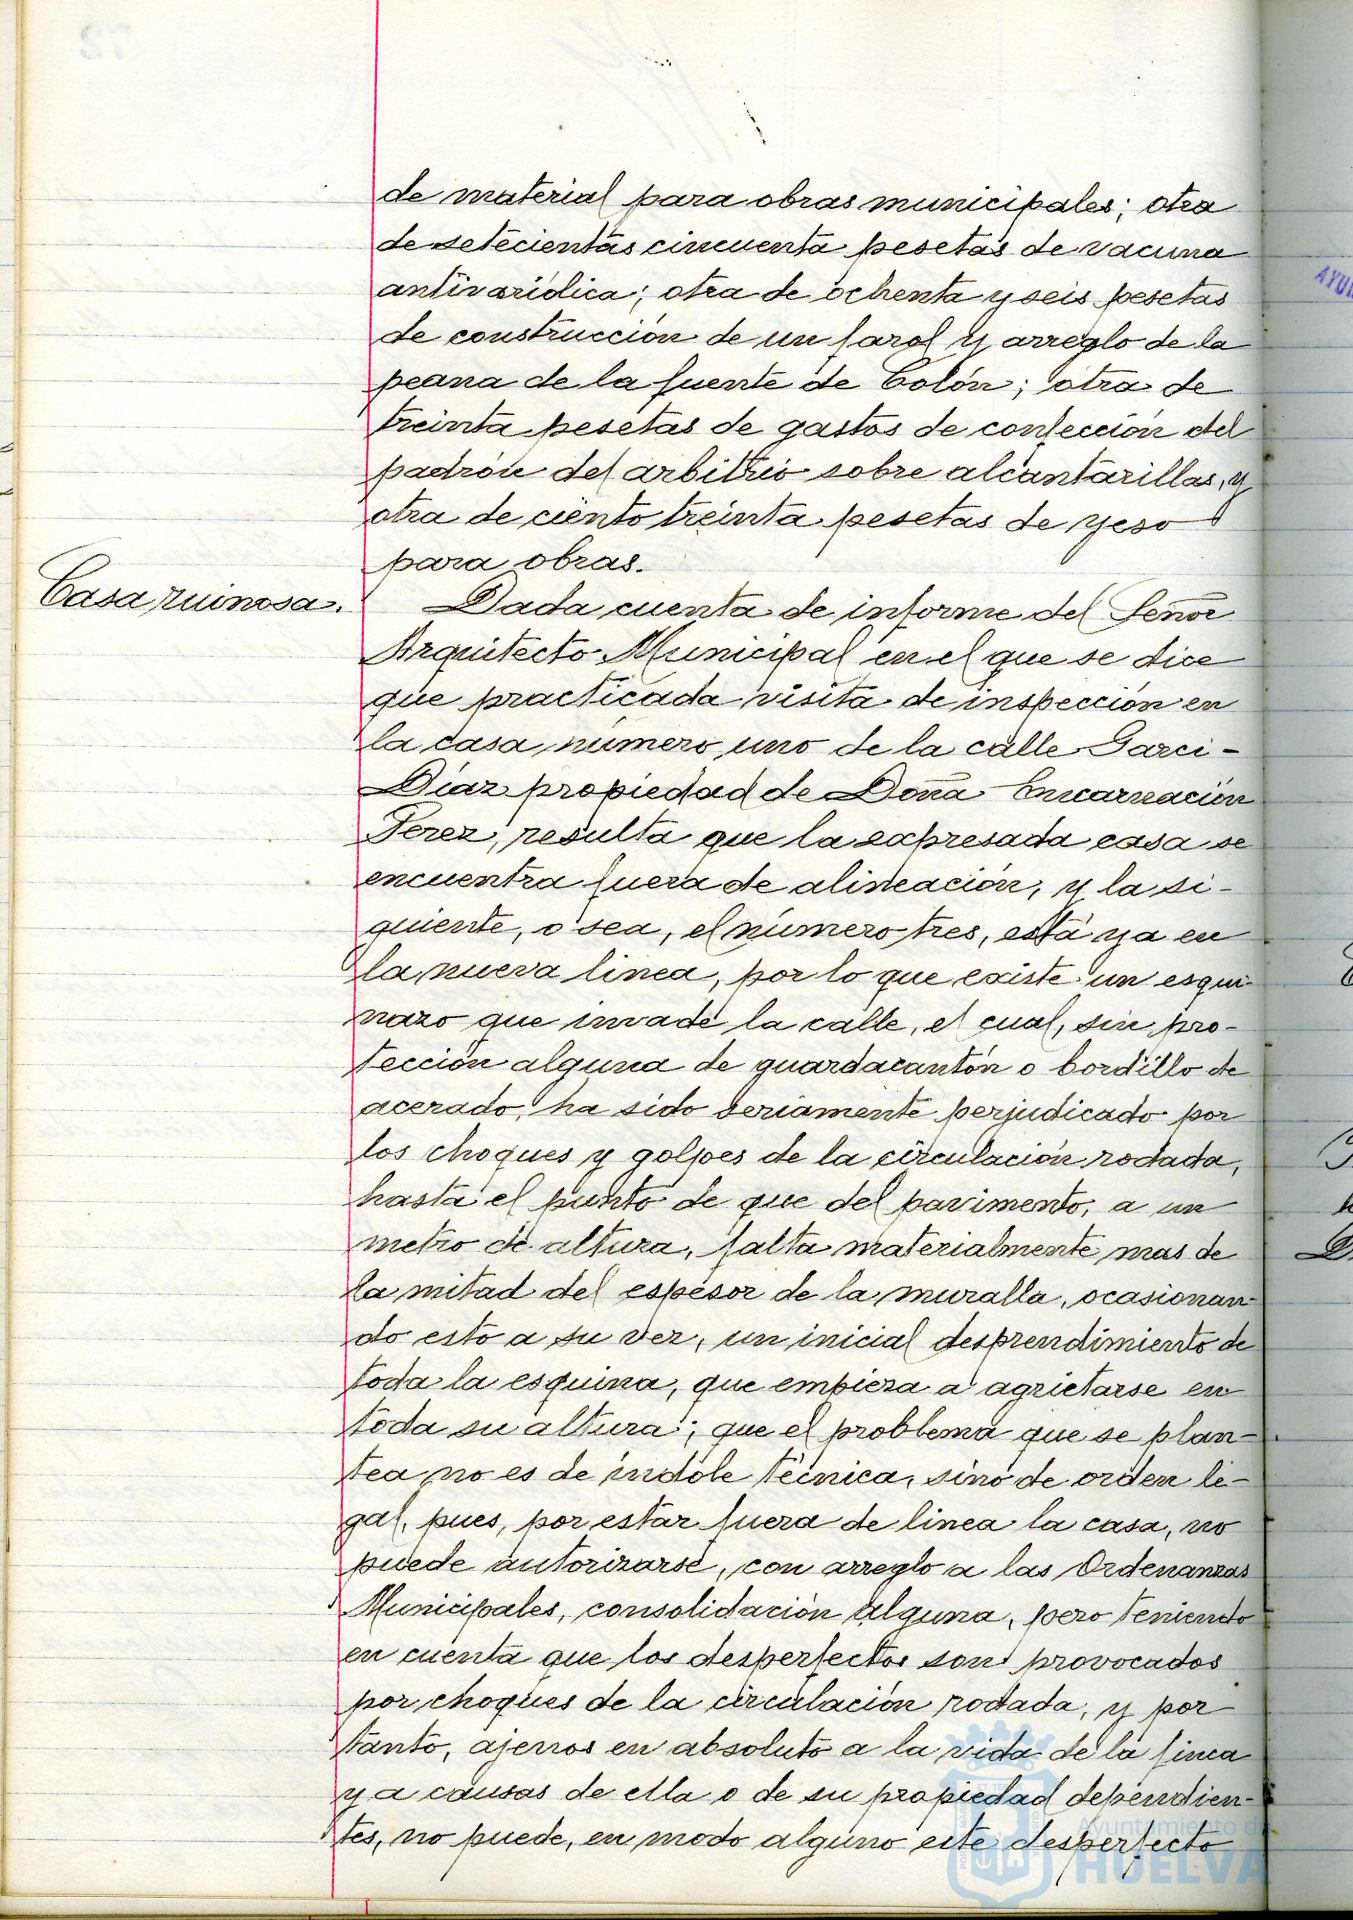 de material para obras municipales; otra
de setecientas cincuenta pesetas de vacuna
antivarídica; otra de ochenta y seis pesetas
de construcción de un farol y arreglo de la
peana de la fuente de Colón; otra de
treinta pesetas de gastos de confección del
padrón del arbitrio sobre alcantarillas, y
otra de ciento treinta pesetas de yeso
para obras.
Casa ruinosa.
Dada cuenta de informe del Señor
Arquitecto Municipal en el que se dice
que practicada visita de inspección en
la casa número uno de la calle Garci-
Díaz propiedad de Doña Encarnación
Perez, resulta que la expresada casa se
encuentra fuera de alineación, y la si-
guiente, o sea, el número tres, está ya en
la nueva linea, por lo que existe un esqui-
nazo que invade la calle, el cual, sin pro-
tección alguna de guardacantón o bordillo de
acerado, ha sido seriamente perjudicado por
los choques y golpes de la circulación rodada,
hasta el punto de que del pavimento, a un
metro de altura, falta materialmente mas de
la mitad del espesor de la muralla, ocasionan-
do esto a su vez, un inicial desprendimiento de
toda la esquina, que empieza a agrietarse en
toda su altura; que el problema que se plan-
tea no es de índole técnica, sino de orden le-
gal, pues, por estar fuera de linea la casa, no
puede autorizarse, con arreglo a las Ordenanzas
Municipales, consolidación alguna, pero teniendo
en cuenta que los desperfectos son provocados
por choques de la circulación rodada, y por
tanto, ajenos en absoluto a la vida de la finca
y a causas de ella o de su propiedad dependien-
tes, no puede, en modo alguno este desperfecto
Ayuntamiento de
HUELVA